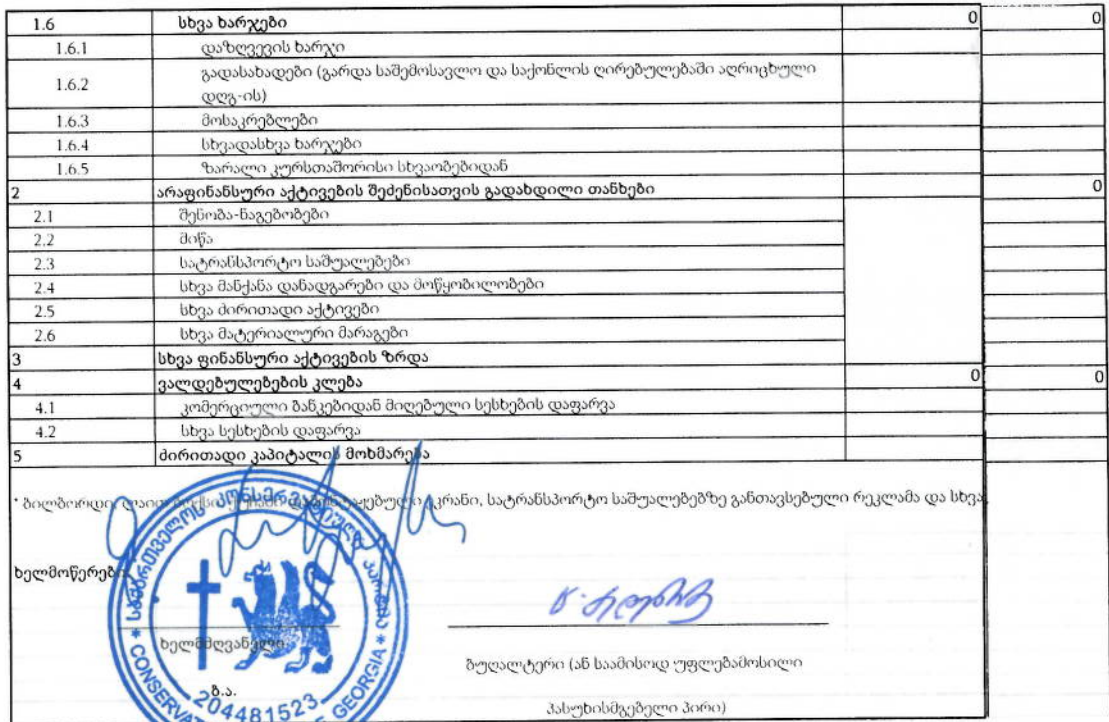 1.6 სხვა ხარჯები 0 0
1.6.1 დაზღვევის ხარჯი
1.6.2 გადასახადები (გარდა საშემოსავლო და საქონლის ღირებულებაში აღრიცხული
დღგ-ის)
1.6.3 მოსაკრებლები
1.6.4 სხვადასხვა ხარჯები
1.6.5 ზარალი კურსთაშორისი სხვაობებიდან
2 არაფინანსური აქტივების შეძენისათვის გადახდილი თანხები 0
2.1 შენობა-ნაგებობები
2.2 მიწა
2.3 სატრანსპორტო საშუალებები
2.4 სხვა მანქანა დანადგარები და მოწყობილობები
2.5 სხვა ძირითადი აქტივები
2.6 სხვა მატერიალური მარაგები
3 სხვა ფინანსური აქტივების ზრდა
4 ვალდებულებების კლება 0 0
4.1 კომერციული ბანკებიდან მიღებული სესხების დაფარვა
4.2 სხვა სესხების დაფარვა
5 ძირითადი კაპიტალის მოხმარება
* ბილბორდი, ეკრანი, სატრანსპორტო საშუალებებზე განთავსებული რეკლამა და სხვა
ხელმოწერები
ხელმძღვანელი
ბუღალტერი (ან საამისოდ უფლებამოსილი
ბ.ა.
პასუხისმგებელი პირი)
204481523
GEORGIA